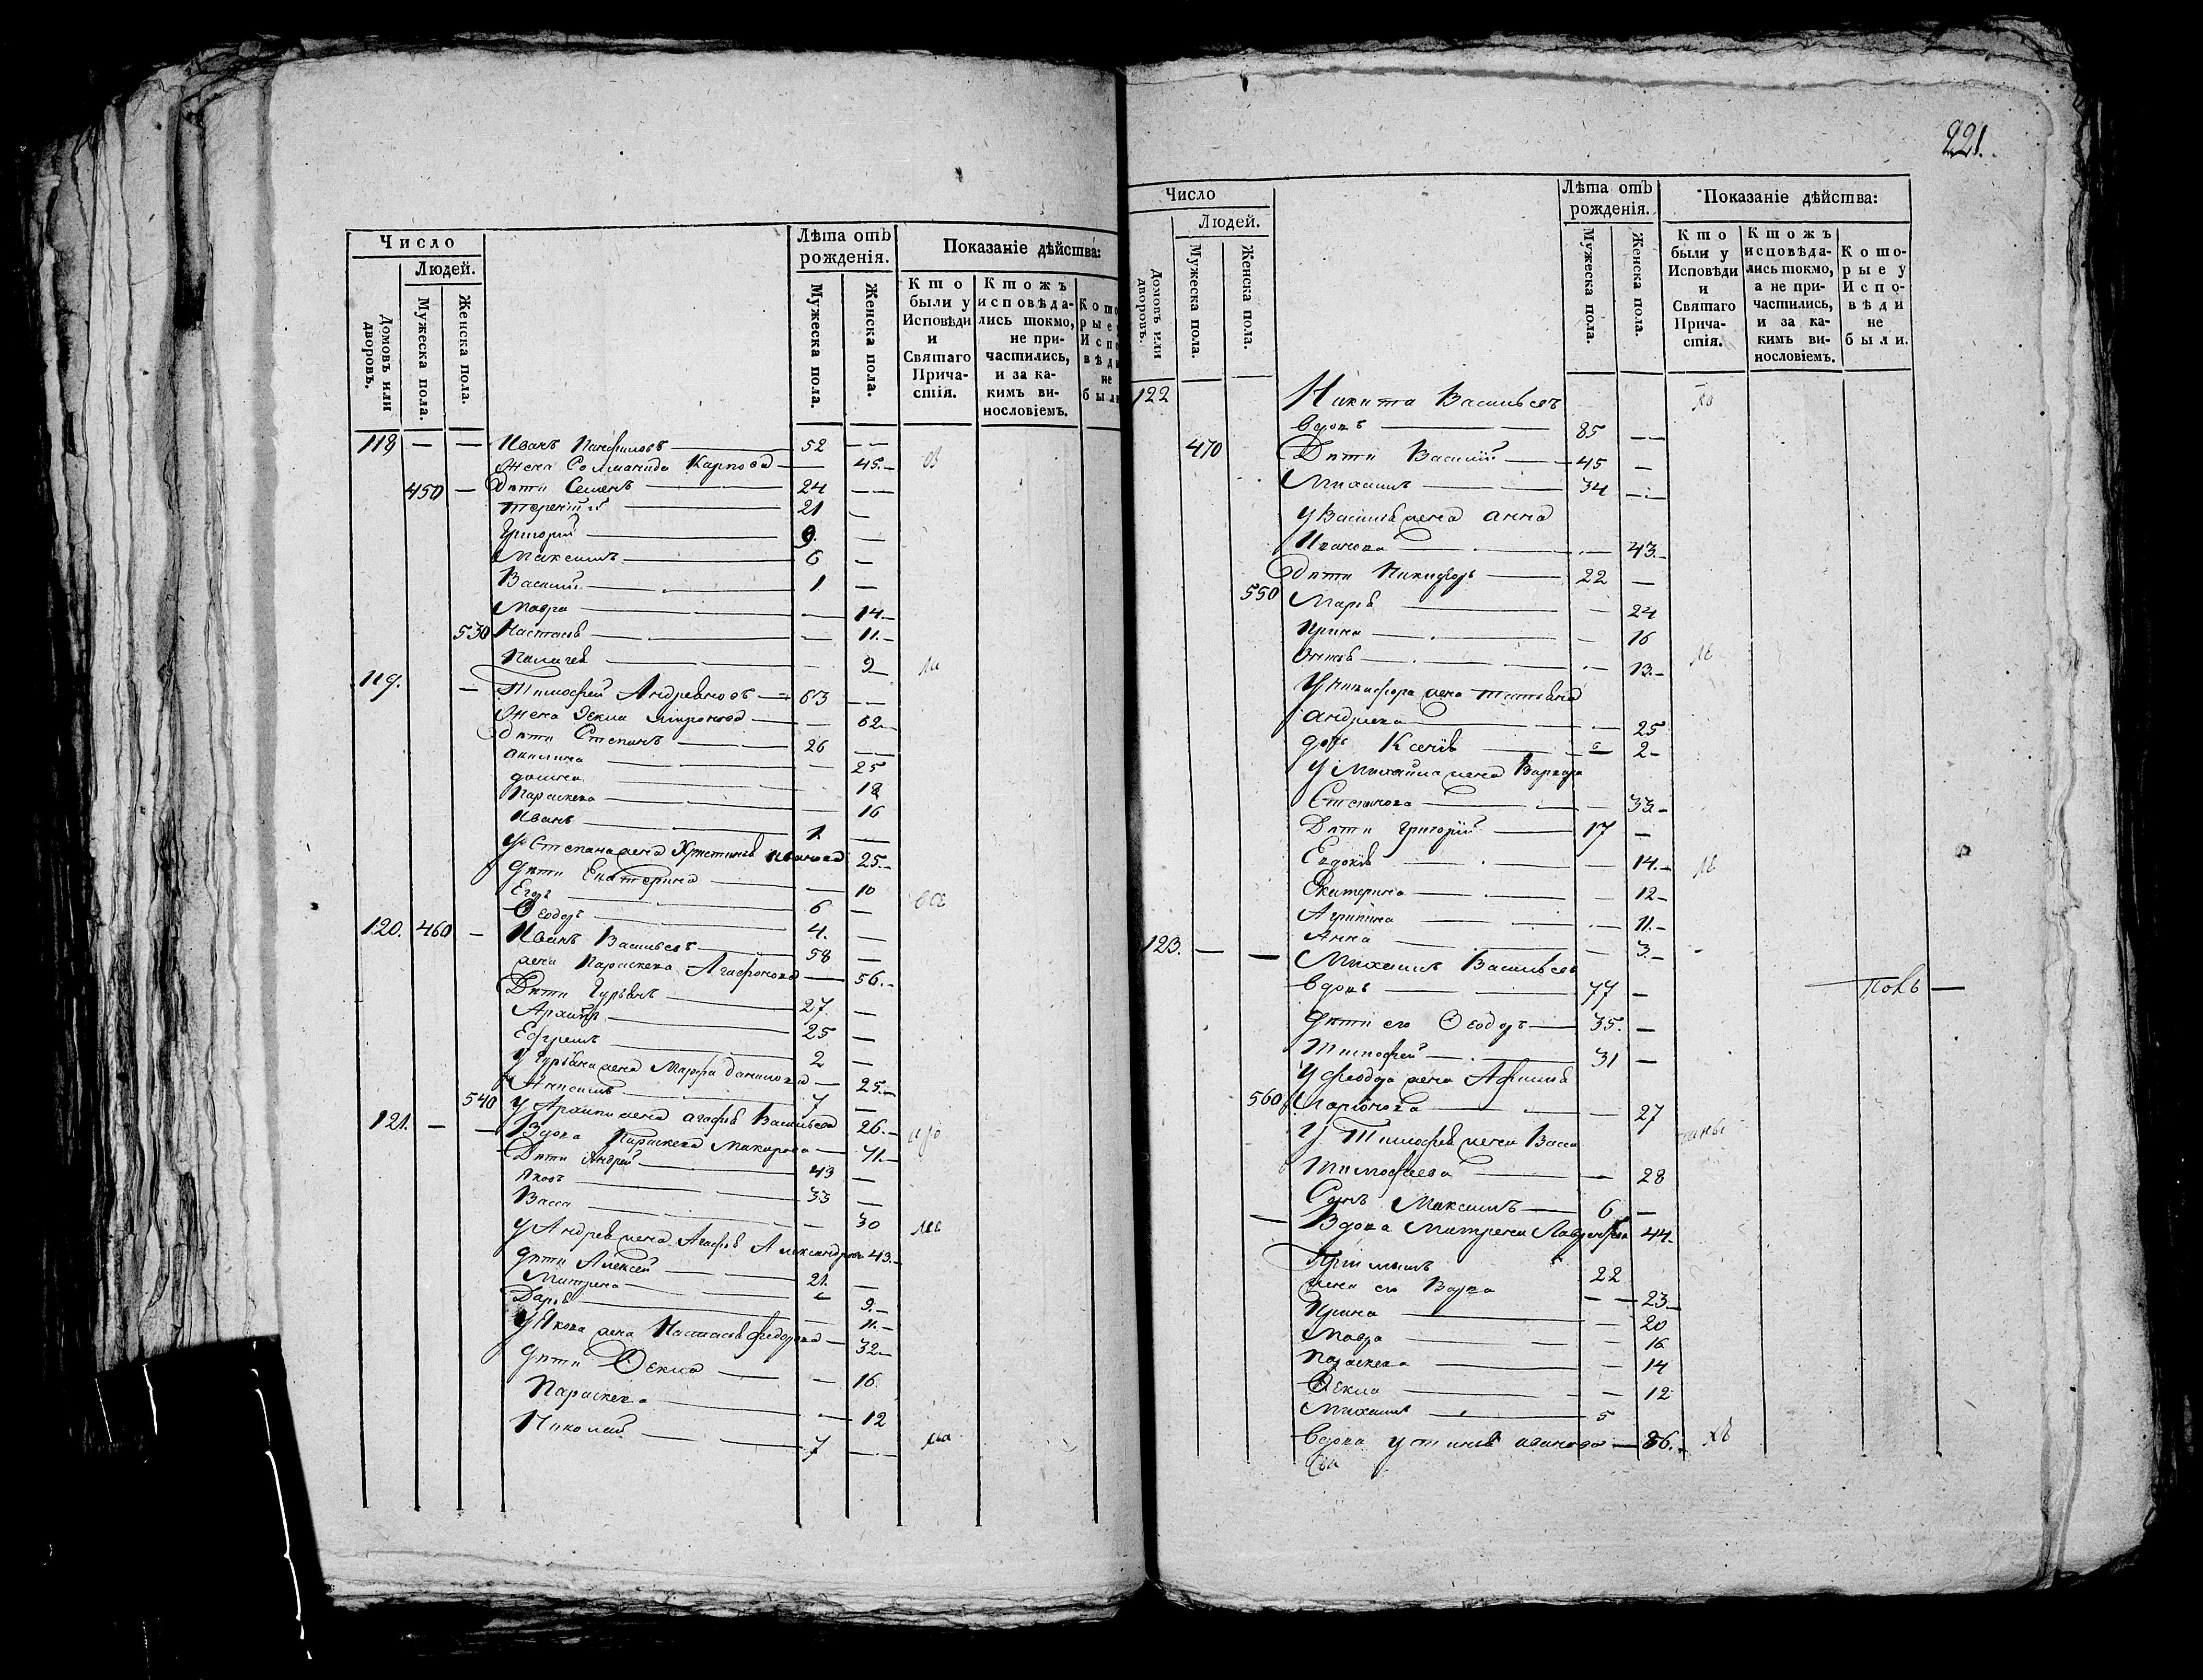 221.
Число
Людей.
Домовъ или дворовъ.
Мужеска пола.
Женска пола.
Лѣта отъ рожденія.
Мужеска пола.
Женска пола.
Показаніе дѣйства:
Кто были у Исповѣди и Святаго Прича-стія.
Ктожъ исповѣда-лись токмо, не при-частились, и за ка-кимъ ви-нословіемъ.
118 — — Иванъ Панфиловъ — 52 —
Жена Соломанида Карпова — 45.
450 — Дѣти Семенъ — 24 —
Терентій — 21 —
Григорій — 9. —
Максимъ — 6 —
Василій — 1 —
Мавра — 14.
530 Настасья — 11.
Пелагея — 9
119. — Тимофей Андреяновъ — 63 —
Жена Текла — 62.
Дѣти Степанъ — 26 —
Акилина — 25
18
Параскева — 16
Иванъ — 1. —
у Степана жена Христинья Иванова 25.
дѣти Екатерина — 10
Егоръ — 6 —
Ѳеодоръ — 4. —
120. 460 — Иванъ Васильевъ — 58 —
жена Параскева Агафонова — 56.
Дѣти Гурьянъ — 27. —
Архипъ — 25 —
Ефремъ — 2 —
у Гурьяна жена Марфа Данилова — 25.
Анисимъ — 7 —
540 у Архипа жена Агафья Васильева 26.
121. — — Вдова Параскева Макарова — 71.
Дѣти Андрей — 43 —
Яковъ — 33 —
Васса — 30
у Андрея жена Агафья Александрова 43.
дѣти Алексей — 21. —
Матрена — 9.
Дарья — 11.
у Якова жена Настасья Федорова — 32
дѣти Ѳекла — 16.
Параскева — 12
Николай — 7 —
Число
Людей.
Домовъ или дворовъ.
Мужеска пола.
Женска пола.
Лѣта отъ рожденія.
Мужеска пола.
Женска пола.
Показаніе дѣйства:
Кто были у Исповѣди и Святаго Прича-стія.
Ктожъ исповѣда-лись токмо, а не при-частились, и за ка-кимъ ви-нословіемъ.
Кото-рые у Испо-вѣди не были.
122 Никита Васильевъ
вдовъ — 85 —
470 Дѣти Василій — 45 —
Михаилъ — 34 —
у Василья жена Анна
Иванова — 43.
Дѣти Никифоръ — 22 —
550 Марья — 24
Ирина — 16
13.
У Никифора жена Татьяна
Андреева — 25
дочь Ксенія — 2
у Михаила жена Варвара
Степанова — 33
Дѣти Григорій — 17 —
Евдокія — 14.
Екатерина — 12
Агрипина — 11.
Анна — 3.
123. — — Михаилъ Васильевъ
вдовъ — 77 —
дѣти его Ѳеодоръ — 35. —
Тимофей — 31 —
у Феодора жена Афимья
560 Ларіонова — 27
у Тимофея жена Васса
Тимофеева — 28
Сынъ Максимъ — 6 —
— Вдова Матрена 44.
22
жена его Варвара — 23
Ирина — 20
Мавра — 16
Параскева — 14
Ѳекла — 12
Михаилъ — 5
вдова Устинья Иванова — 86.